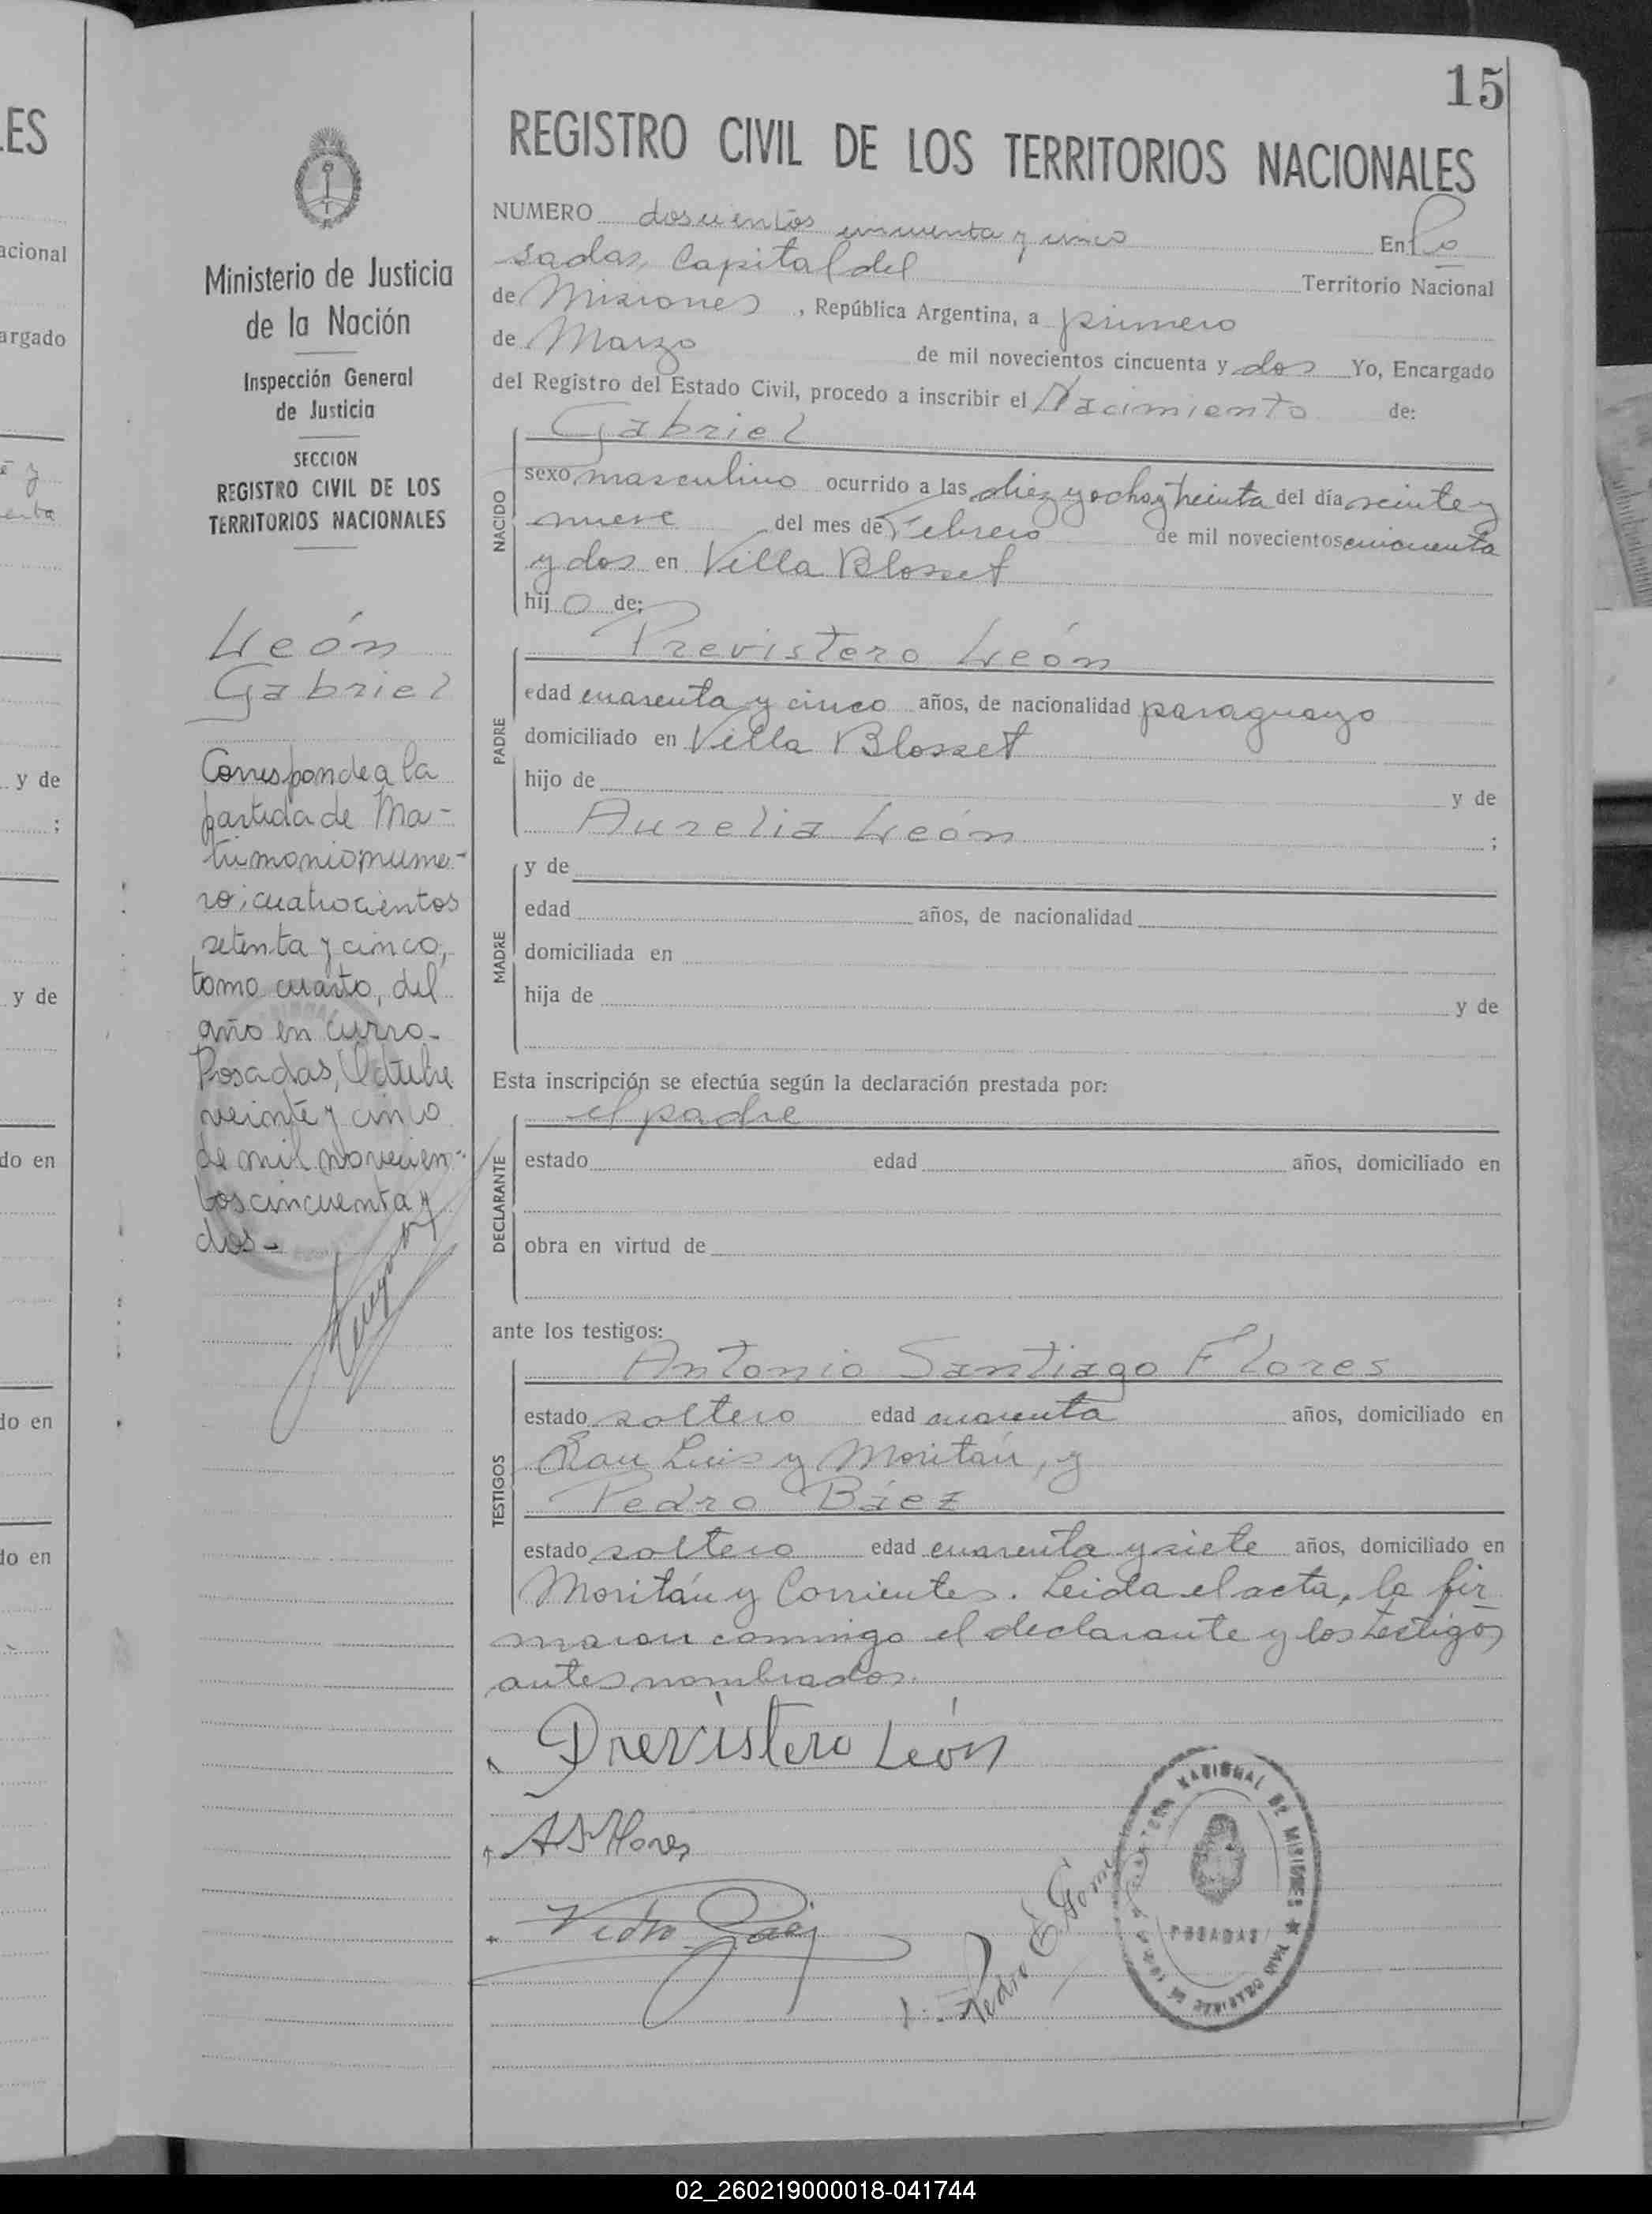 15
REGISTRO CIVIL DE LOS TERRITORIOS NACIONALES
NUMERO doscientos cincuenta y uno En Po
sadas, Capital del Territorio Nacional
de Misiones, República Argentina, a primero
de Marzo de mil novecientos cincuenta y dos Yo, Encargado
del Registro del Estado Civil, procedo a inscribir el Nacimiento de:
Gabriel
NACIDO
sexo masculino ocurrido a las diez y ocho y treinta del día veinte y
nueve del mes de Febrero de mil novecientos cincuenta
y dos en Villa Blosset
hijo de:
Previstero León
PADRE
edad cuarenta y cinco años, de nacionalidad paraguayo
domiciliado en Villa Blosset
hijo de y de
Aurelia León ;
MADRE
y de
edad años, de nacionalidad
domiciliada en
hija de y de
Esta inscripción se efectúa según la declaración prestada por:
el padre
DECLARANTE
estado edad años, domiciliado en
obra en virtud de
ante los testigos:
Antonio Santiago Flores
TESTIGOS
estado soltero edad cuarenta años, domiciliado en
San Luis y Moritán, y
Pedro Báez
estado soltero edad cuarenta y siete años, domiciliado en
Moritán y Corrientes. Leida el acta, la fir
maron conmigo el declarante y los testigos
antes nombrados.
Previstero León
A S Flores
Pedro Báez
Pedro E. Gom
NACIONAL DE MISIONES
POSADAS
Ministerio de Justicia
de la Nación
Inspección General
de Justicia
SECCION
REGISTRO CIVIL DE LOS
TERRITORIOS NACIONALES
León
Gabriel
Corresponde a la
partida de Ma-
trimonio nume-
ro; cuatrocientos
setenta y cinco,
tomo cuarto, del
año en curso-
Posadas, Octubre
veinte y cinco
de mil novecien-
tos cincuenta y
dos-
LES
acional
argado
y de
;
y de
do en
do en
do en
02_260219000018-041744